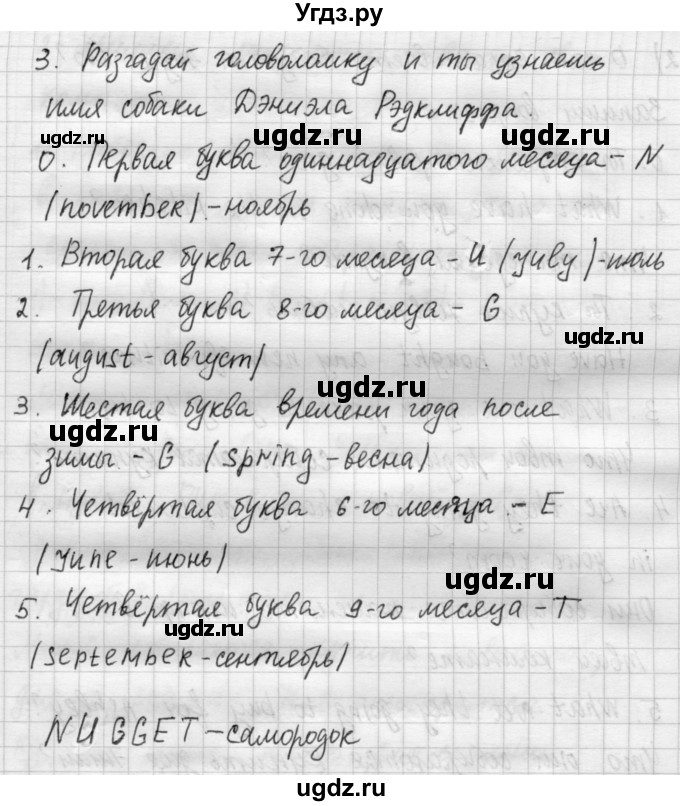 Угдз.ру
3. Разгадай головоломку и ты узнаешь
имя собаки Дэниэла Рэдклиффа.
ugdz.ru ugdz.ru
0. Первая буква одиннадцатого месяца - N
ugdz.ru
(november) - ноябрь
1. Вторая буква 7-го месяца - U (yuly) - июль
2. Третья буква 8-го месяца - G
ugdz.ru
(august - август)
ugdz.ru
3. Шестая буква времени года после
ugdz.ru
зимы - G (spring - весна)
4. Четвёртая буква 6-го месяца - E
(yune - июнь)
ugdz.ru
5. Четвёртая буква 9-го месяца - T
ugdz.ru
(september - сентябрь)
NUGGET - самородок
ugdz.ru